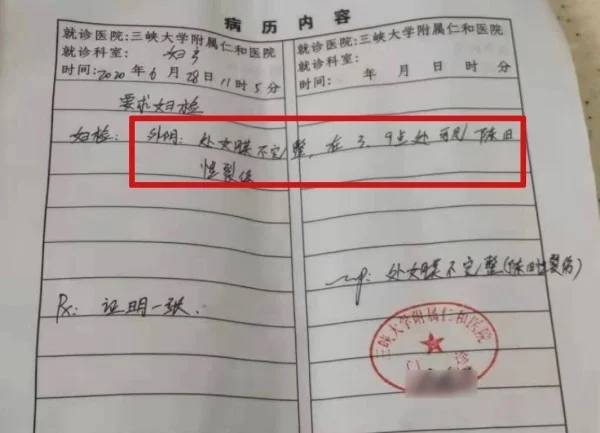 病历内容
就诊医院:三峡大学附属仁和医院
就诊科室: 妇产
时间:2020年6月28日11时5分
要求妇检
妇检: 外阴: 处女膜不完整, 在3、9点处可见陈旧
性裂伤
Rx: 证明一张.
就诊医院:三峡大学附属仁和医院
就诊科室:
时间: 年 月 日 时 分
处女膜不完整(陈旧性裂伤)
三峡大学附属仁和医院
门诊